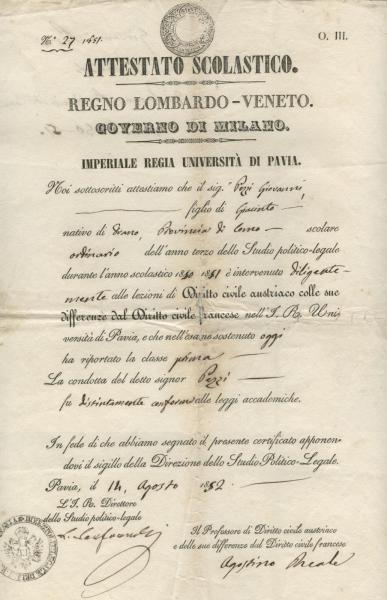 N° 27 1851.
O. III.
ATTESTATO SCOLASTICO.
REGNO LOMBARDO-VENETO.
GOVERNO DI MILANO.
IMPERIALE REGIA UNIVERSITÀ DI PAVIA.
Noi sottoscritti attestiamo che il sig.r Pozzi Giovanni,
figlio di Giacinto
nativo di Provincia di Como scolare
ordinario dell'anno terzo dello Studio politico-legale
durante l'anno scolastico 1850 1851 è intervenuto diligente-
mente alle lezioni di Diritto civile austriaco colle sue
differenze dal Diritto civile francese nell'I. R. Uni
versità di Pavia, e che nell'esame sostenuto oggi
ha riportato la classe prima
La condotta del detto signor Pozzi
fu distintamente conforme alle leggi accademiche.
In fede di che abbiamo segnato il presente certificato apponen-
dovi il sigillo della Direzione dello Studio Politico-Legale.
Pavia, il 14 Agosto 1852
L'I. R. Direttore
dello Studio politico-legale
Il Professore di Diritto civile austriaco
e delle sue differenze dal Diritto civile francese
Agostino Reale